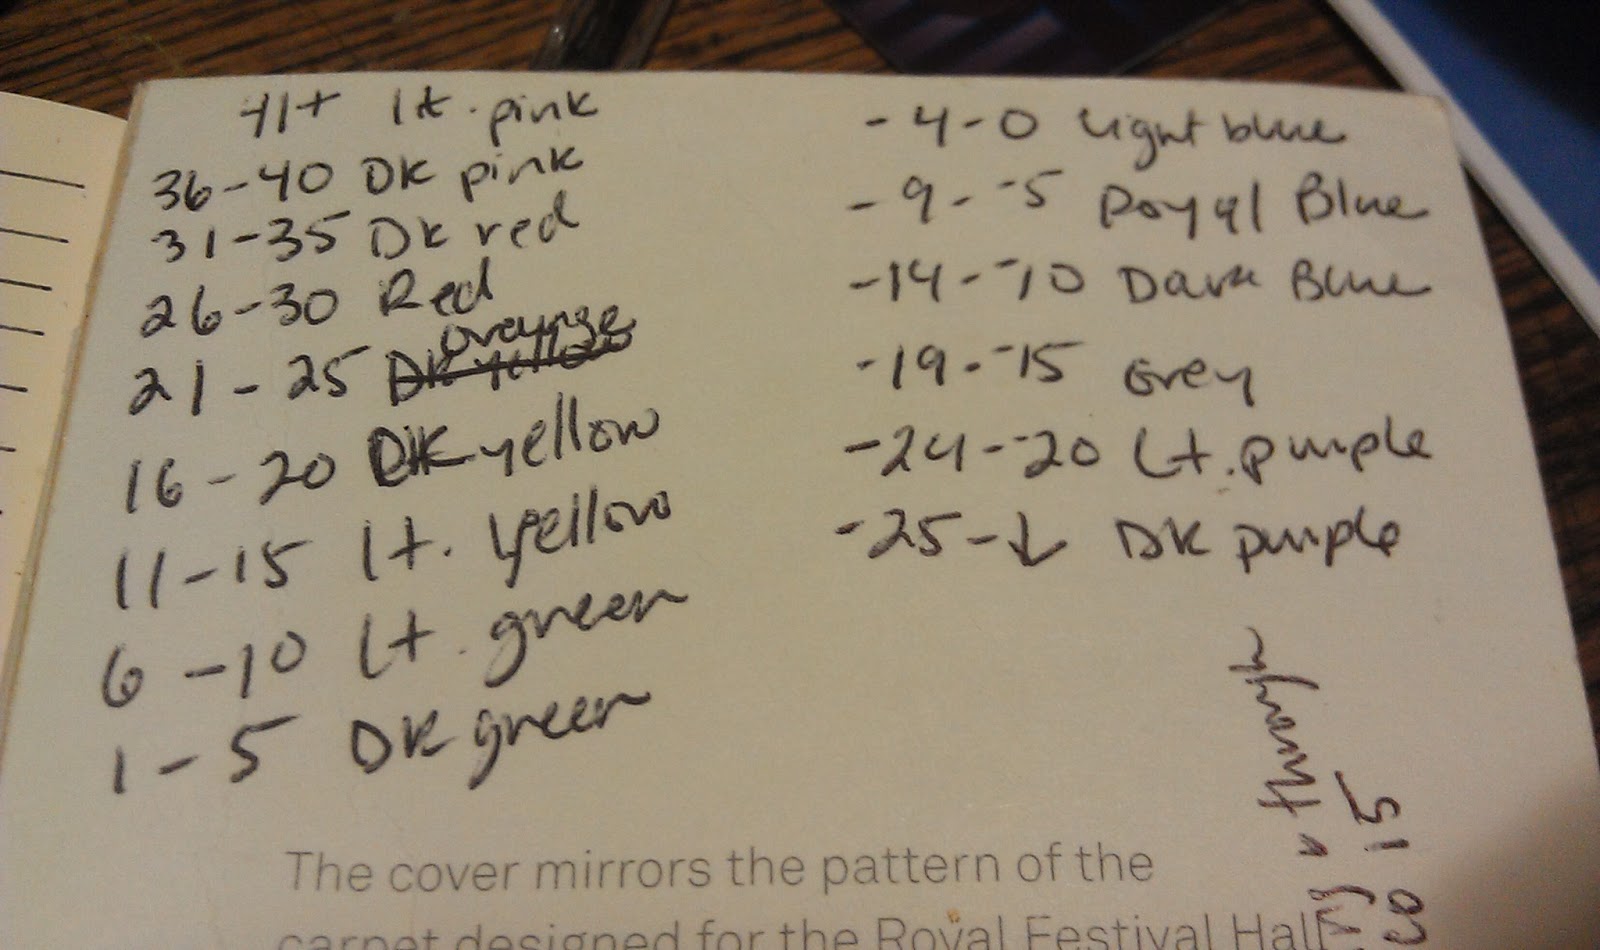 41+ lt. pink
36-40 DK pink
31-35 DK red
26-30 Red
21-25 DK yellow orange
16-20 DK yellow
11-15 lt. yellow
6-10 lt. green
1-5 DK green
-4-0 light blue
-9--5 Royal Blue
-14--10 Dark Blue
-19--15 Grey
-24--20 Lt. purple
-25-↓ DK purple
through
15
The cover mirrors the pattern of the
carpet designed for the Royal Festival Hall